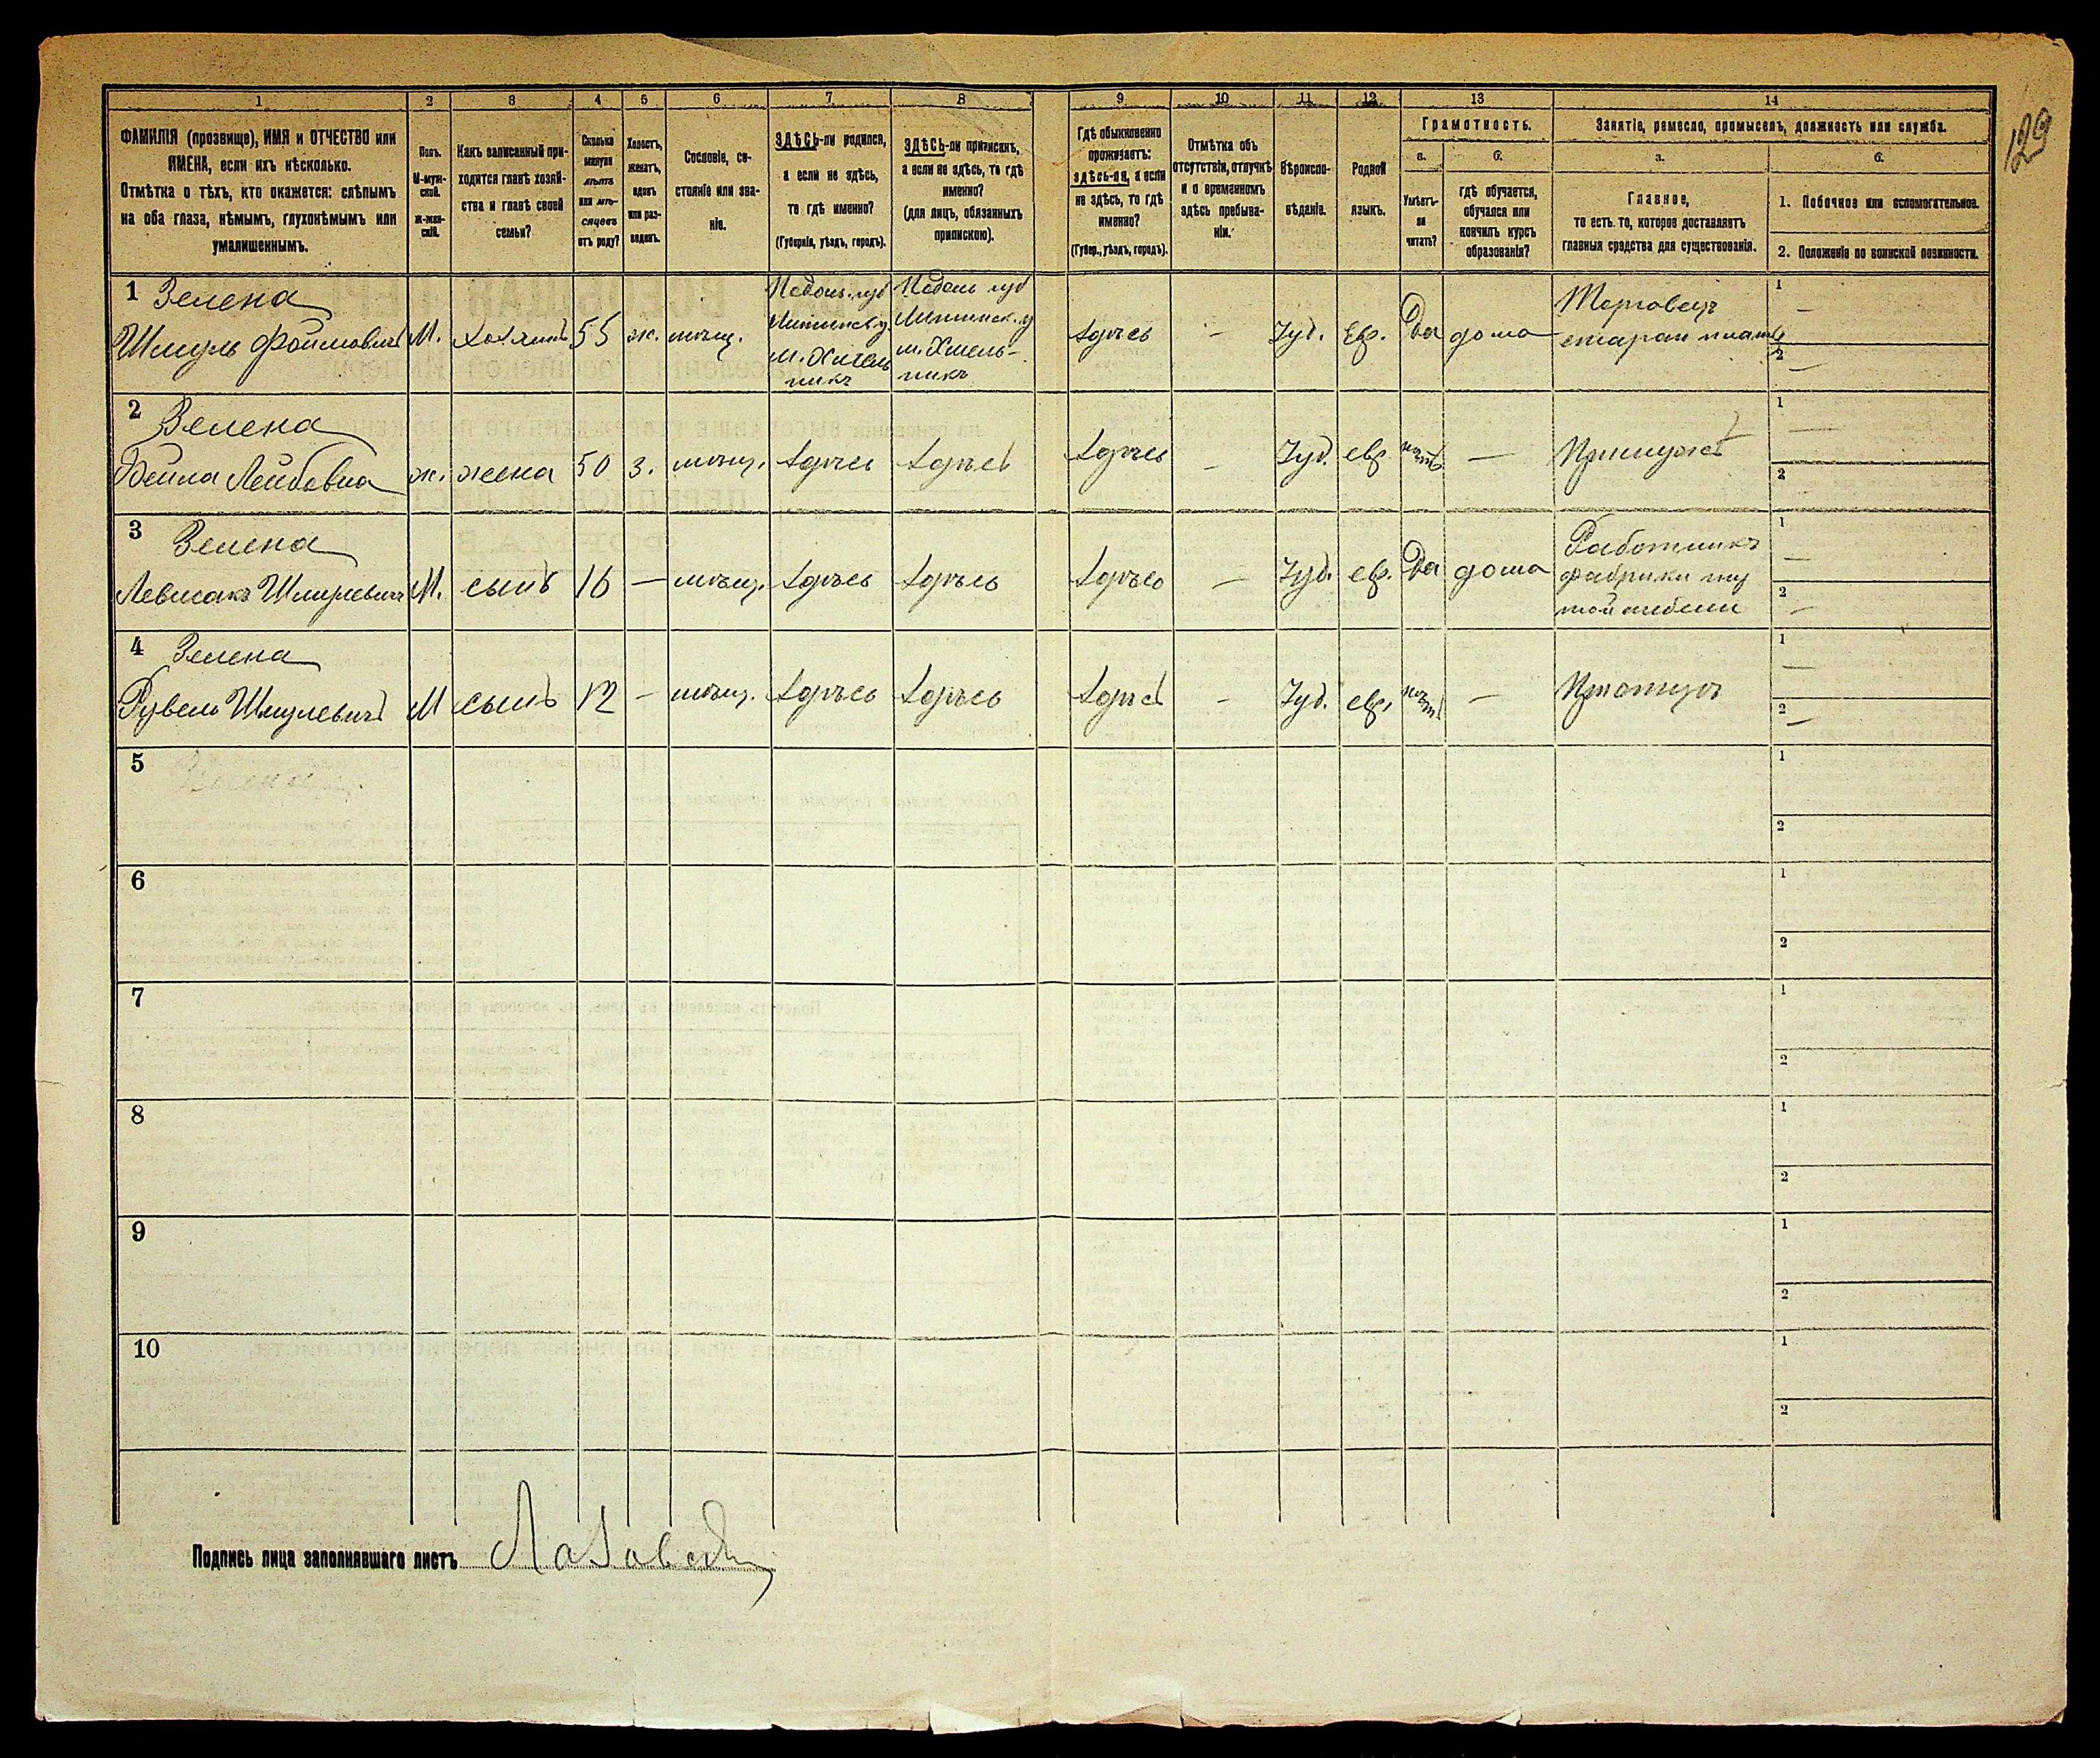 129
1 2 3 4 5 6 7 8 9 10 11 12 13 14
ФАМИЛІЯ (прозвище), ИМЯ и ОТЧЕСТВО или
ИМЕНА, если ихъ нѣсколько.
Отмѣтка о тѣхъ, кто окажется: слѣпымъ
на оба глаза, нѣмымъ, глухонѣмымъ или
умалишеннымъ.
Полъ.
М-муж-
ской.
Ж-жен-
скій.
Какъ записанный при-
ходится главѣ хозяй-
ства и главѣ своей
семьи?
Сколько
минуло
лѣтъ
или мѣ-
сяцевъ
отъ роду?
Холостъ,
женатъ,
вдовъ
или раз-
веденъ.
Сословіе, со-
стояніе или зва-
ніе.
ЗДѢСЬ-ли родился,
а если не здѣсь,
то гдѣ именно?
(Губернія, уѣздъ, городъ).
ЗДѢСЬ-ли приписанъ,
а если не здѣсь, то гдѣ
именно?
(для лицъ, обязанныхъ
припискою).
Гдѣ обыкновенно
проживаетъ:
здѣсь-ли, а если
не здѣсь, то гдѣ
именно?
(Губер., уѣздъ, городъ).
Отмѣтка объ
отсутствіи, отлучкѣ
и о временномъ
здѣсь пребыва-
ніи.
Вѣроиспо-
вѣданіе.
Родной
языкъ.
Грамотность.
а.
Умѣетъ-
ли
читать?
б.
гдѣ обучается,
обучался или
кончилъ курсъ
образованія?
Занятіе, ремесло, промыселъ, должность или служба.
а.
Главное,
то есть то, которое доставляетъ
главныя средства для существованія.
б.
1. Побочное или вспомогательное.
2. Положеніе по воинской повинности.
1 Зелена
Шмуль Фроимовичъ М. хозяинъ 55 ж. мѣщ.
Подоль. губ
Литинск. у
м. Хмель
никъ
Подоль губ
Литинск. у
м. Хмель-
никъ
здѣсь - Іуд. Евр. Да дома
Торговецъ
старая
1 —
2 —
2 Зелена
Бейла Лейбовна ж. жена 50 з. мѣщ. здѣсь здѣсь здѣсь - Іуд. евр. нѣтъ — При мужѣ
1 —
2
3 Зелена
Шмулевичъ М. сынъ 16 — мѣщ. здѣсь здѣсь здѣсь - Іуд. евр. Да дома
Работникъ
фабрики гну
той мебели
1 —
2 —
4 Зелена
Рувель Шмулевичъ М сынъ 12 - мѣщ. здѣсь здѣсь здѣсь - Іуд. евр. нѣтъ — При отцѣ
1 —
2 —
5 Зелена
1
2
6
1
2
7
1
2
8
1
2
9
1
2
10
1
2
Подпись лица заполнявшаго листъ